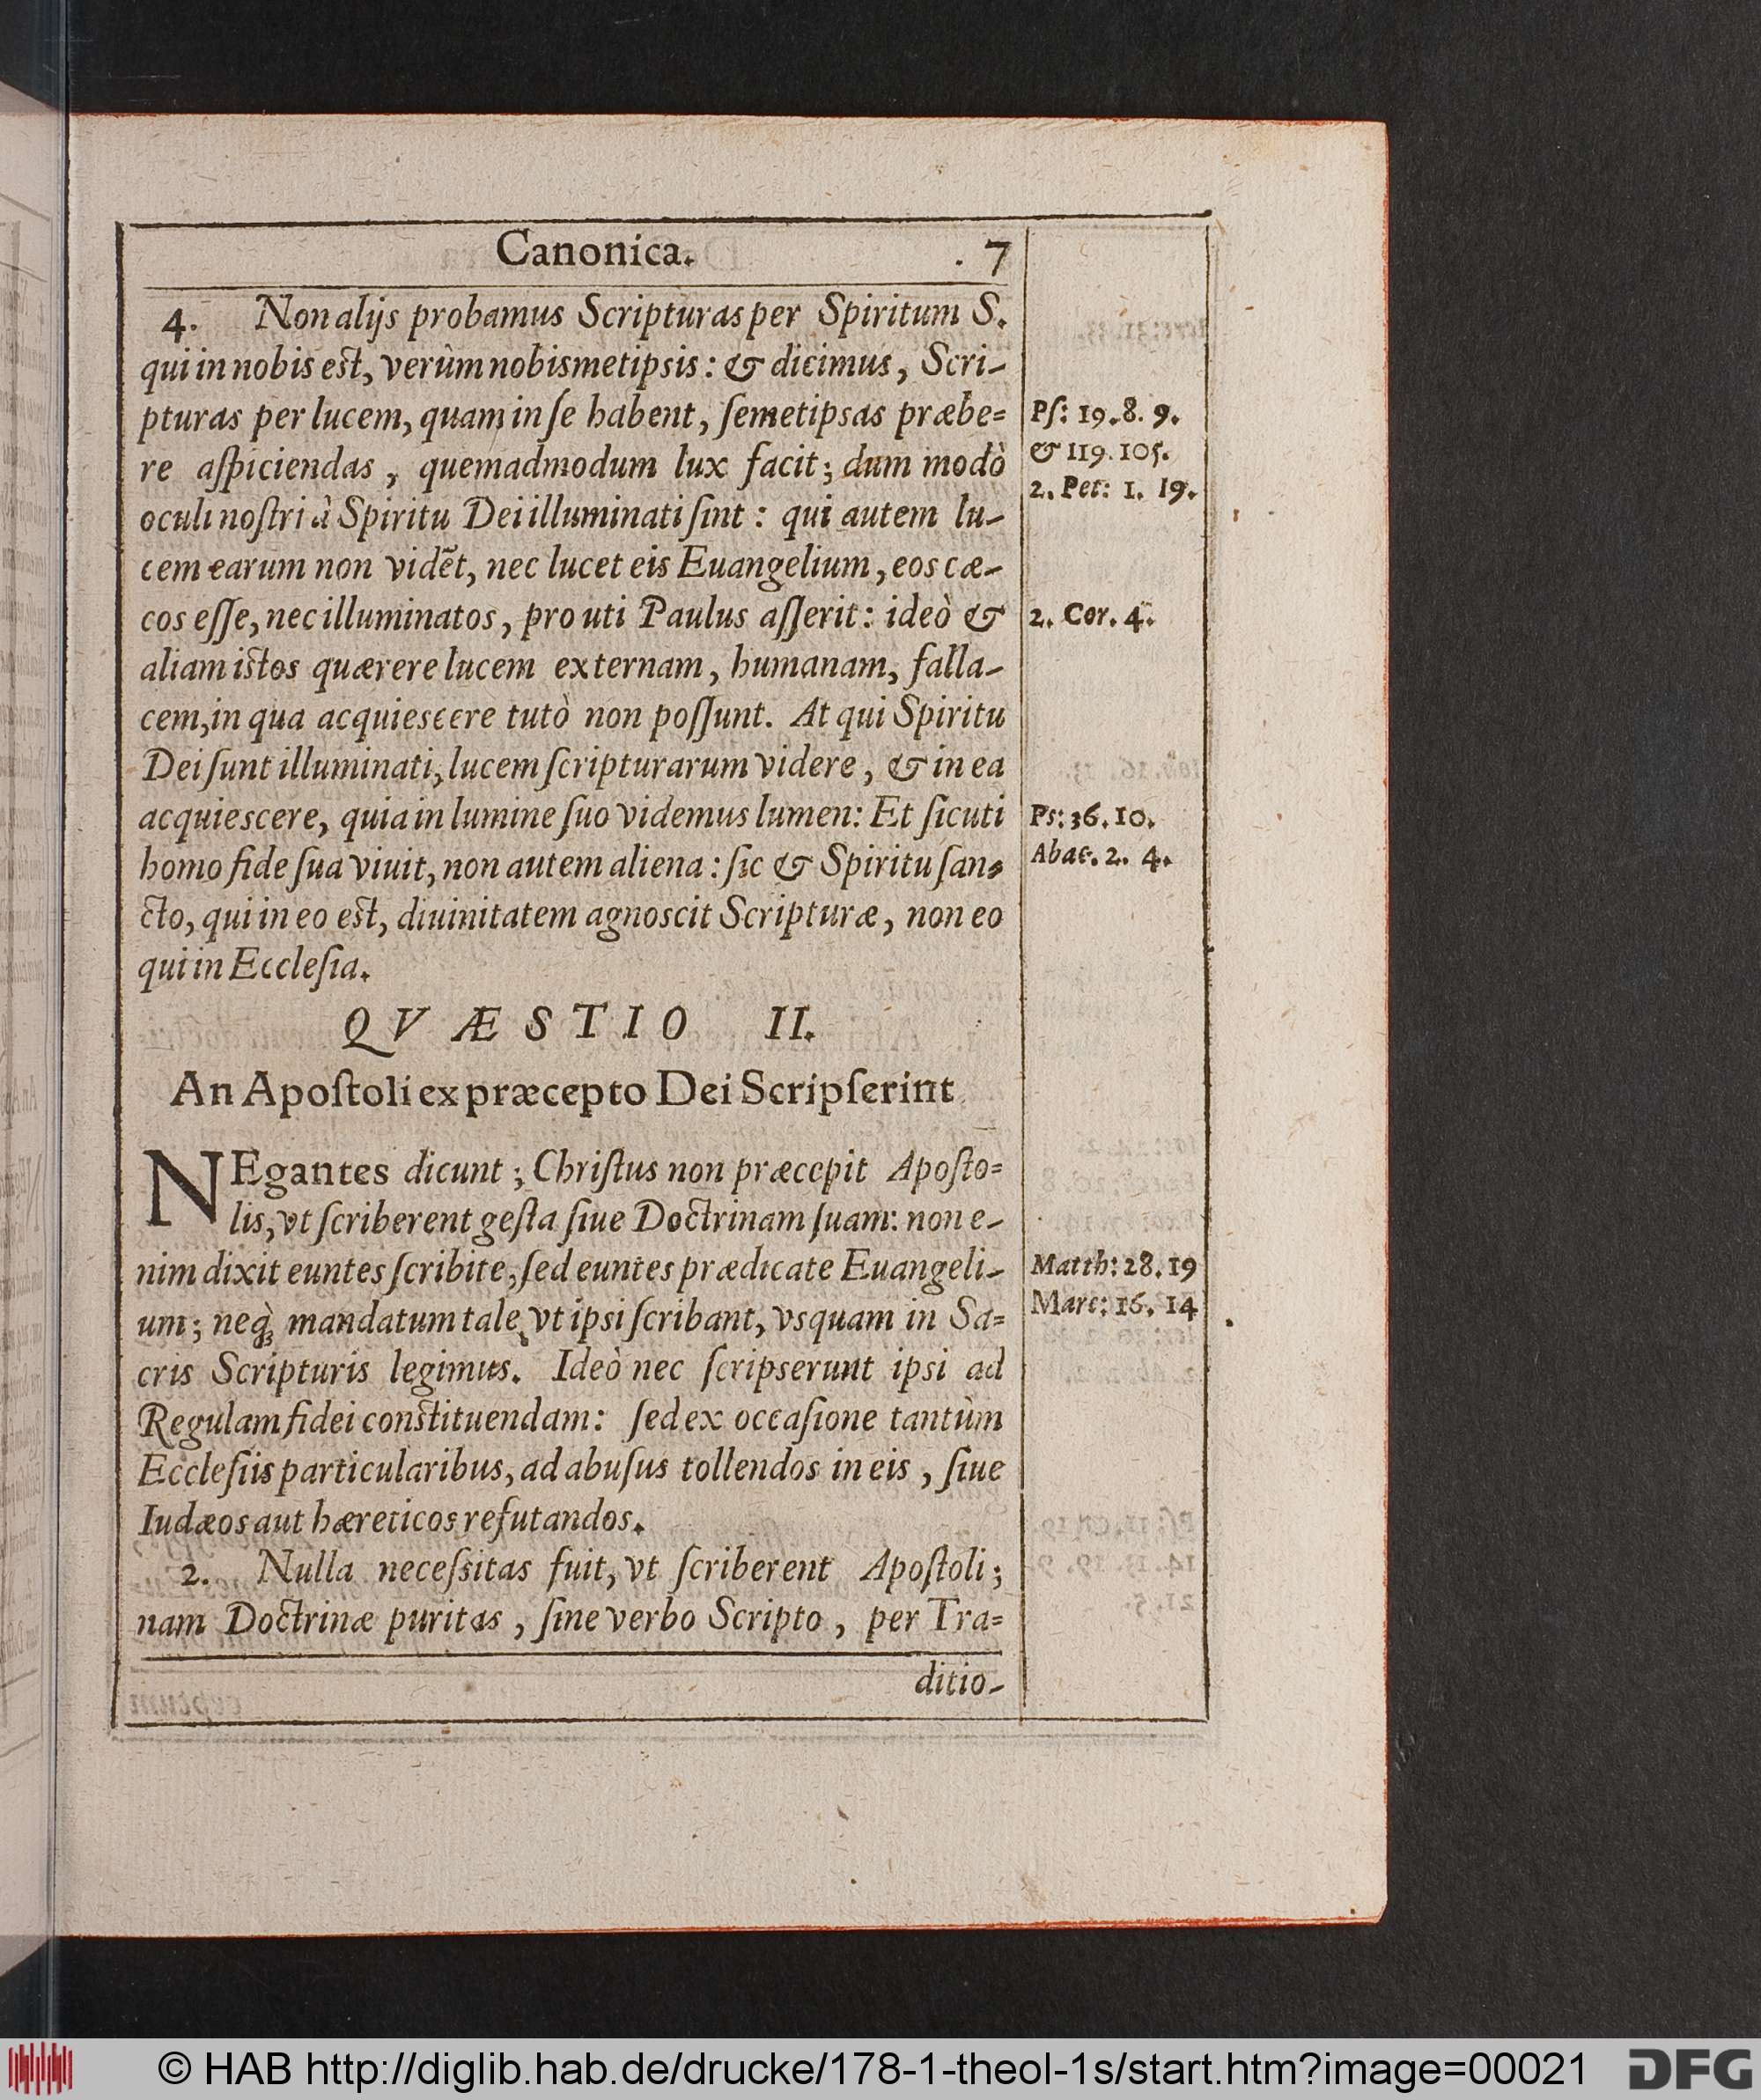 Canonica. 7
4. Non alijs probamus Scripturas per Spiritum S.
qui in nobis est, verùm nobismetipsis: & dicimus, Scri-
pturas per lucem, quam in ſe habent, ſemetipsas præbe=
re aſpiciendas, quemadmodum lux facit; dum modò
oculi noſtri à Spiritu Dei illuminati ſint: qui autem lu-
cem earum non vidẽt, nec lucet eis Euangelium, eos cæ-
cos eſſe, nec illuminatos, pro uti Paulus aſſerit: ideò &
aliam istos quærere lucem externam, humanam, falla-
cem, in qua acquiescere tutò non poſſunt. At qui Spiritu
Dei ſunt illuminati, lucem ſcripturarum videre, & in ea
acquiescere, quia in lumine ſuo videmus lumen: Et ſicuti
homo fide ſua viuit, non autem aliena: ſic & Spiritu ſan-
cto, qui in eo est, diuinitatem agnoscit Scripturæ, non eo
qui in Eccleſia.
Pſ: 19.8. 9.
& 119.105.
2. Pet: 1. 19.
2. Cor. 4.
Ps: 36.10.
Abac. 2. 4.
QVÆSTIO II.
An Apoſtoli ex præcepto Dei Scripſerint
NEgantes dicunt; Chriſtus non præcepit Apoſto=
lis, vt ſcriberent geſta ſiue Doctrinam ſuam: non e-
nim dixit euntes ſcribite, ſed euntes prædicate Euangeli-
um; neq; mandatum tale, vt ipsi ſcribant, vsquam in Sa=
cris Scripturis legimus. Ideò nec ſcripserunt ipsi ad
Regulam fidei constituendam: ſed ex occaſione tantùm
Eccleſiis particularibus, ad abuſus tollendos in eis, ſiue
Iudæos aut hæreticos refutandos.
2. Nulla neceſsitas fuit, vt ſcriberent Apoſtoli;
nam Doctrinæ puritas, ſine verbo Scripto, per Tra=
ditio-
Matth: 28.19
Marc: 16. 14
© HAB http://diglib.hab.de/drucke/178-1-theol-1s/start.htm?image=00021
DFG